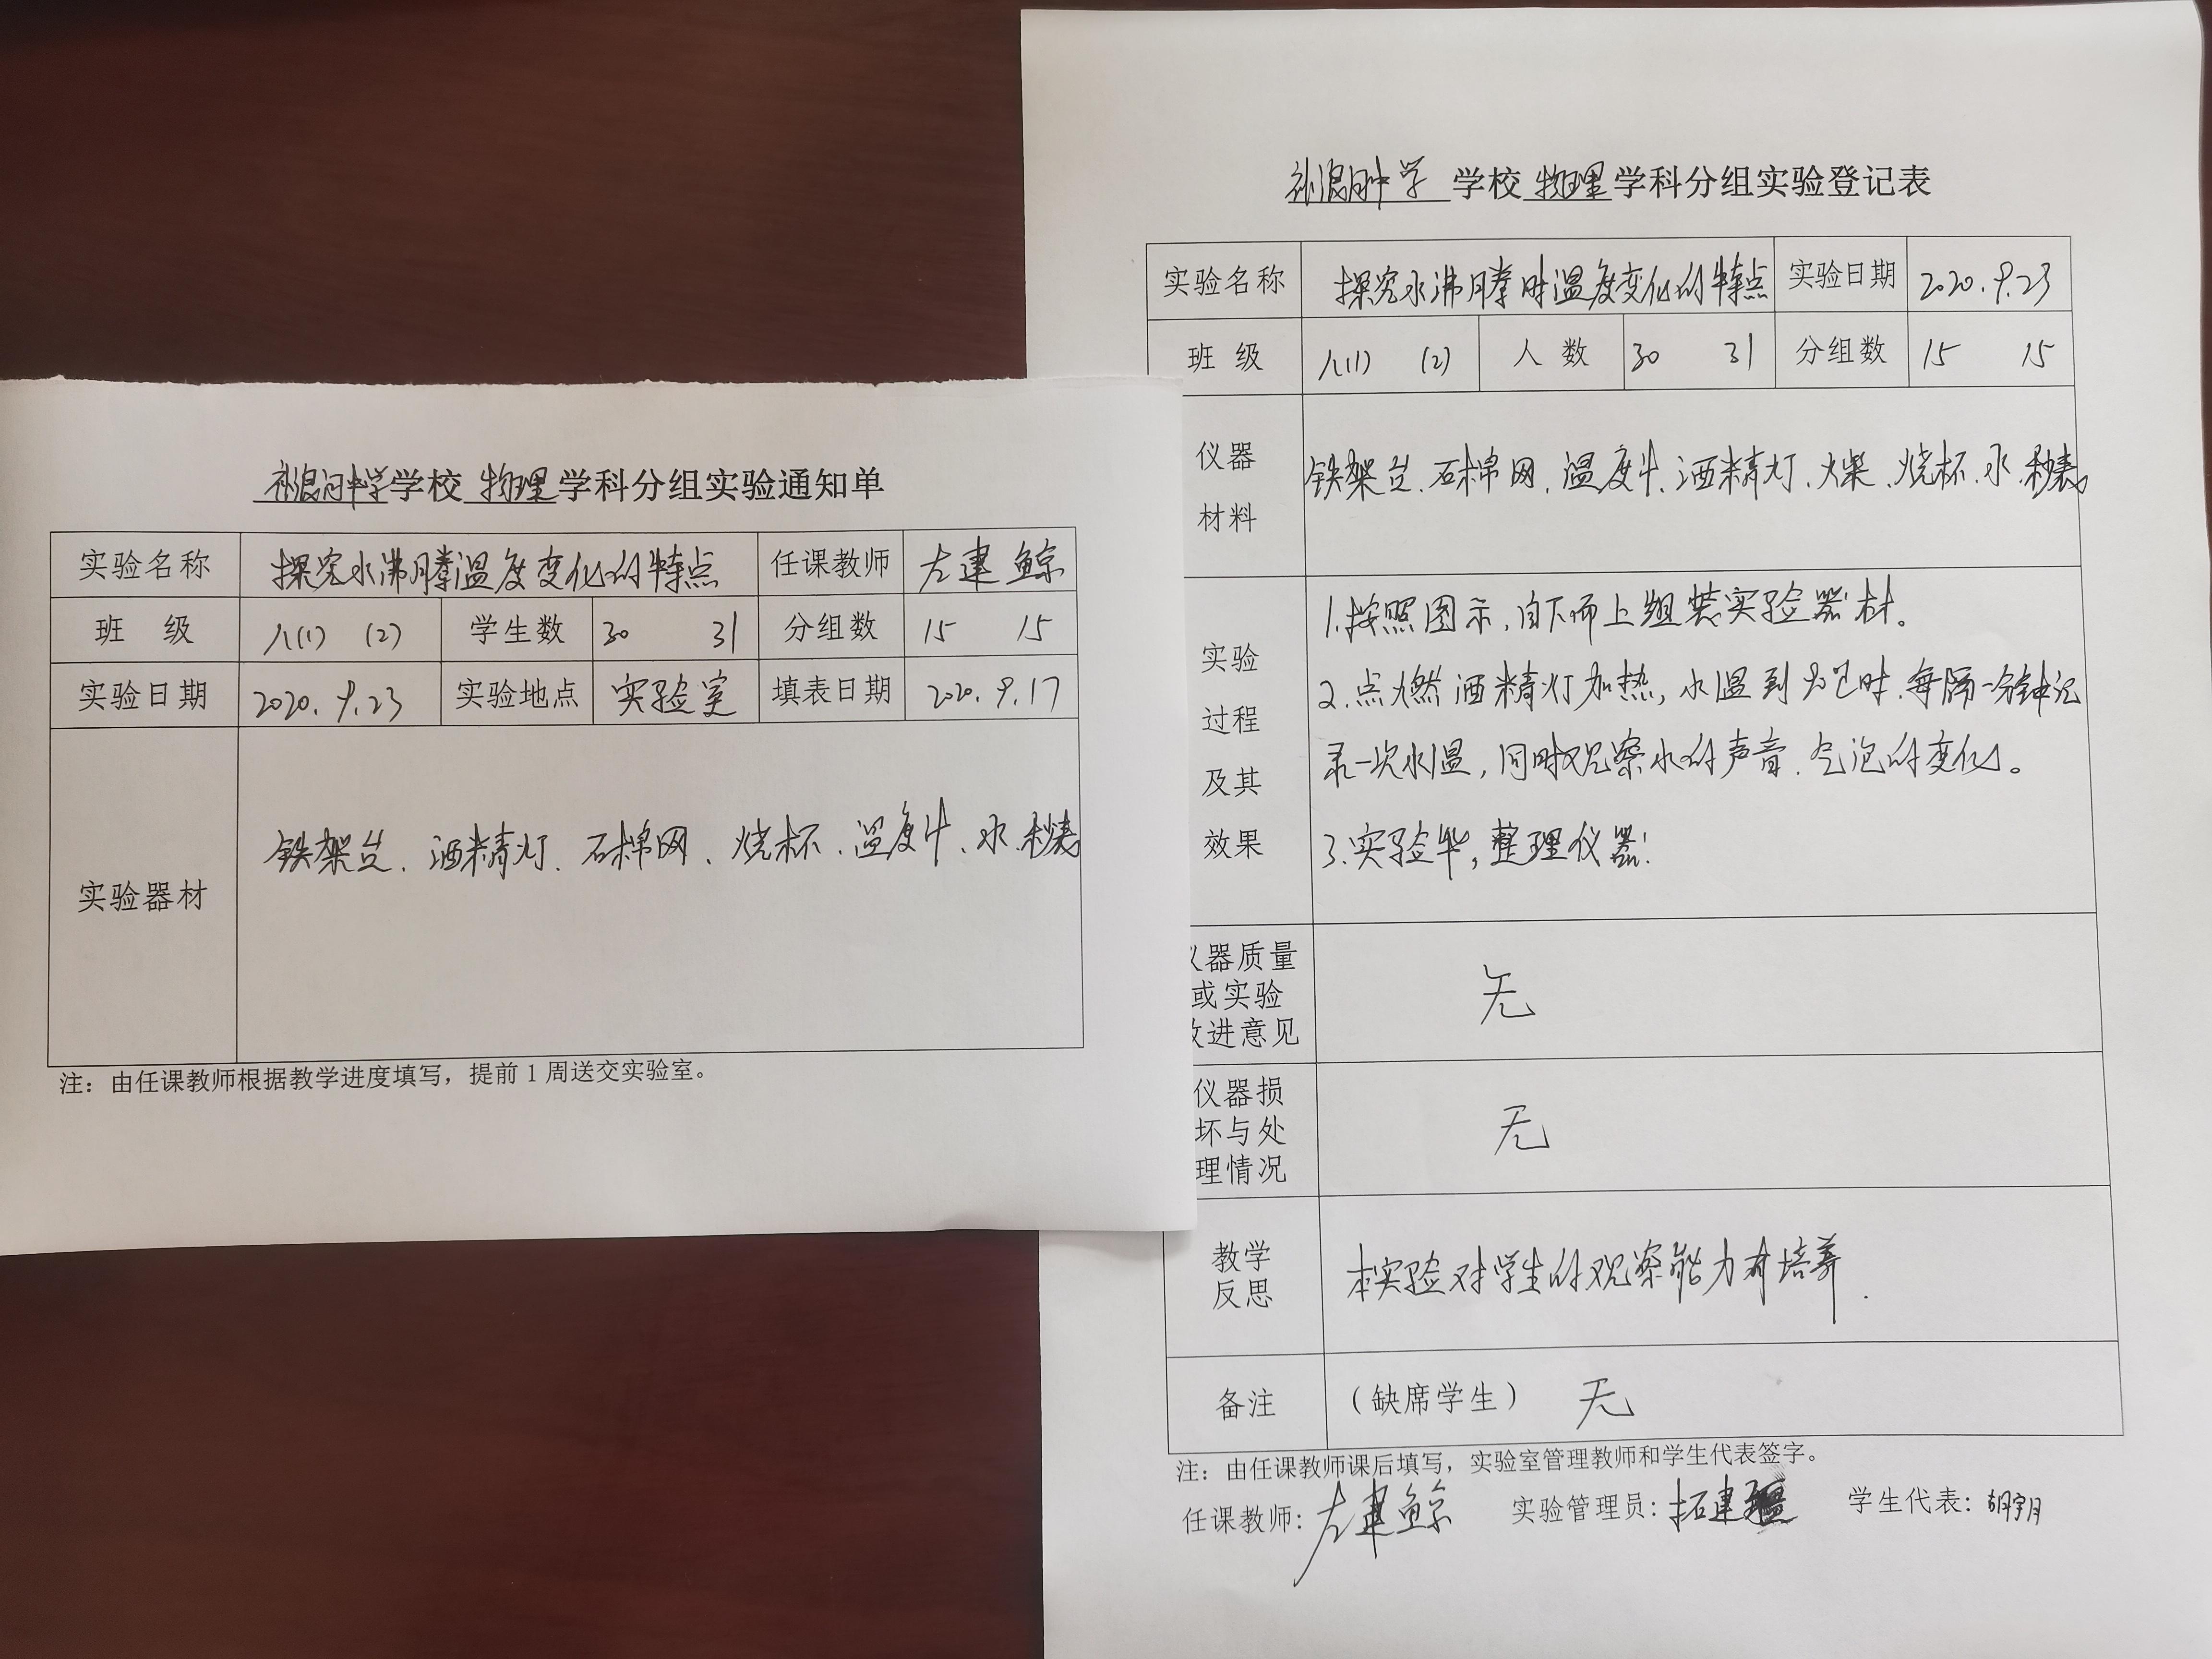 补浪河中学学校物理学科分组实验通知单
实验名称 探究水沸腾温度变化的特点 任课教师 左建鲸
班 级 八(1) (2) 学生数 30 31 分组数 15 15
实验日期 2020.9.23 实验地点 实验室 填表日期 2020.9.17
实验器材 铁架台、酒精灯、石棉网、烧杯、温度计、水、秒表
注：由任课教师根据教学进度填写，提前1周送交实验室。
补浪河中学学校物理学科分组实验登记表
实验名称 探究水沸腾时温度变化的特点 实验日期 2020.9.23
班 级 八(1) (2) 人 数 30 31 分组数 15 15
仪器
材料
铁架台、石棉网、温度计、酒精灯、火柴、烧杯、水、秒表
实验
过程
及其
效果
1.按照图示，自下而上组装实验器材。
2.点燃酒精灯加热，水温到90℃时，每隔一分钟记
录一次水温，同时观察水的声音、气泡的变化。
3.实验毕，整理仪器.
仪器质量
或实验
改进意见
无
仪器损
坏与处
理情况
无
教学
反思
本实验对学生的观察能力有培养.
备注 （缺席学生） 无
注：由任课教师课后填写，实验室管理教师和学生代表签字。
任课教师：左建鲸 实验管理员：拓建 学生代表：胡宇月